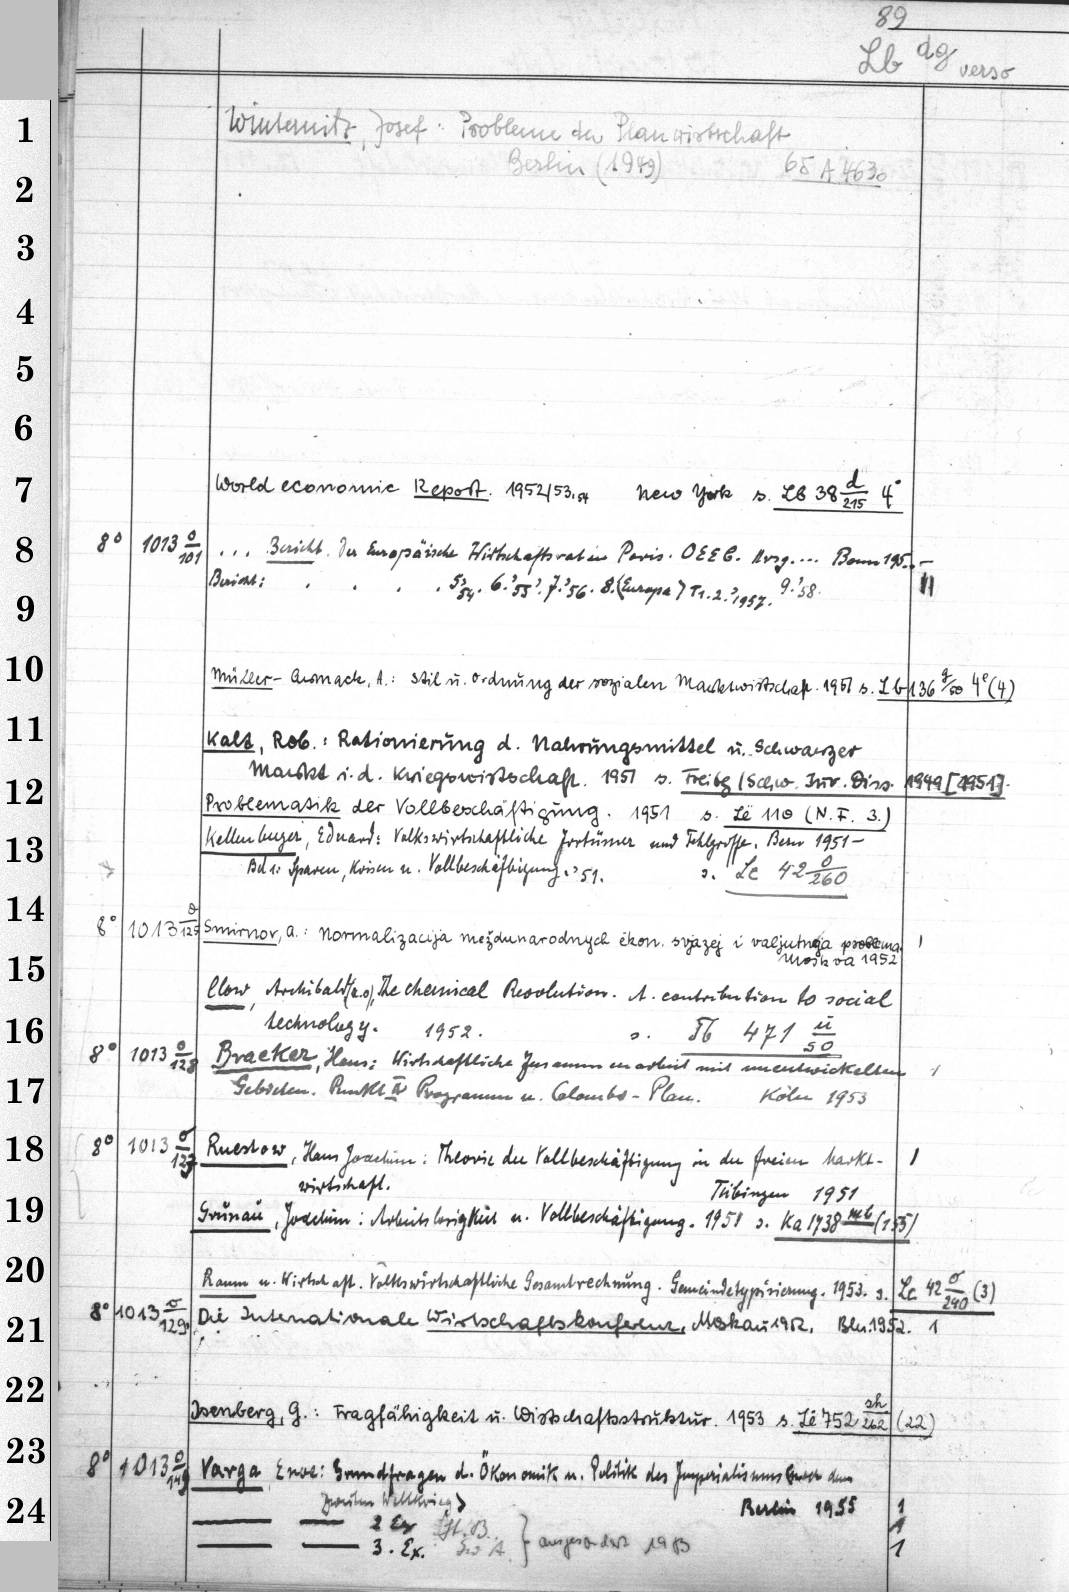 89
Lb dg verso
1 Winternitz, Josef: Probleme der Planwirtschaft
2 Berlin (1949) 65 A 4630
3
4
5
6
7 World economic Report. 1952/53.54 New York s. LB 38 d/215 4°
8 8° 1013 o/101 ... Bericht. Der Europäische Wirtschaftsrat in Paris. OEEC. Hrsg.... Bonn 195.. –
9 Bericht: . . . . 5.'54. 6.'55. 7.'56. 8. (Europa) T1.2.'1957. 9.'58. II
10 Müller-Armack, A.: Stil u. Ordnung der sozialen Marktwirtschaft. 1951 s. Lb 136 g/50 4°(4)
11 Kalt, Rob.: Rationierung d. Nahrungsmittel u. Schwarzer
12 Markt i. d. Kriegswirtschaft. 1951 s. Freibg/Schw. Jur. Diss. 1949 [1951].
Problematik der Vollbeschäftigung. 1951 s. Lë 110 (N.F. 3.)
13 Kellenberger, Eduard: Volkswirtschaftliche Irrtümer und Fehlgriffe. Bern 1951–
Bd 1: Sparen, Krisen u. Vollbeschäftigung. '51. s. Lc 42 o/260
14 8° 1013 o/125 Smirnov, A.: Normalizacija meždunarodnych ėkon. svjazej i valjutnaja problema. 1
15 Moskva 1952
Clow, Archibald (a.o), The chemical Revolution. A contribution to social
16 technology. 1952. s. Πb 471 ü/50
8° 1013 o/128 Braeker, Hans: Wirtschaftliche Zusammenarbeit mit unentwickelten 1
17 Gebieten. Punkt IV Programm u. Colombo-Plan. Köln 1953
18 8° 1013 o/127 Ruestow, Hans Joachim: Theorie der Vollbeschäftigung in der freien Markt- 1
wirtschaft. Tübingen 1951
19 Grünau, Joachim: Arbeitslosigkeit u. Vollbeschäftigung. 1951 s. Ka 1738 mb (155)
20 Raum u. Wirtschaft. Volkswirtschaftliche Gesamtrechnung. Gemeindetypisierung. 1953. s. Lc 42 o/240 (3)
21 8° 1013 o/129 Die Internationale Wirtschaftskonferenz, Moskau 1952. Bln. 1952. 1
22 Isenberg, G.: Tragfähigkeit u. Wirtschaftsstruktur. 1953 s. Lë 752 sh/262 (22)
23 8° 1013 o/149 Varga, : Grundfragen d. Ökonomik u. Politik des Imperialismus (nach dem
24 Zweiten Weltkrieg) Berlin 1955 1
2 Ex 1
3. Ex. ausgesondert 1983 1